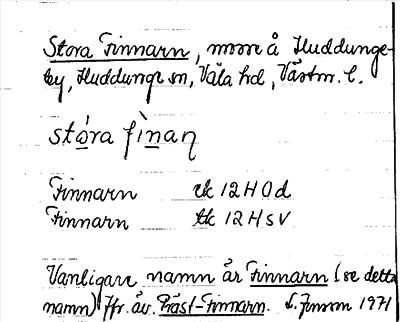 Stora Finnarn, mosse å Huddunge-
by, Huddunge sn, Våla hd, Västm. l.
stòra fìnaɳ
Finnarn rk 12H0d
Finnarn tk 12HSV
Vanligare namn är Finnarn (se detta
namn) Jfr. äv. Präst-Finnarn. 1971